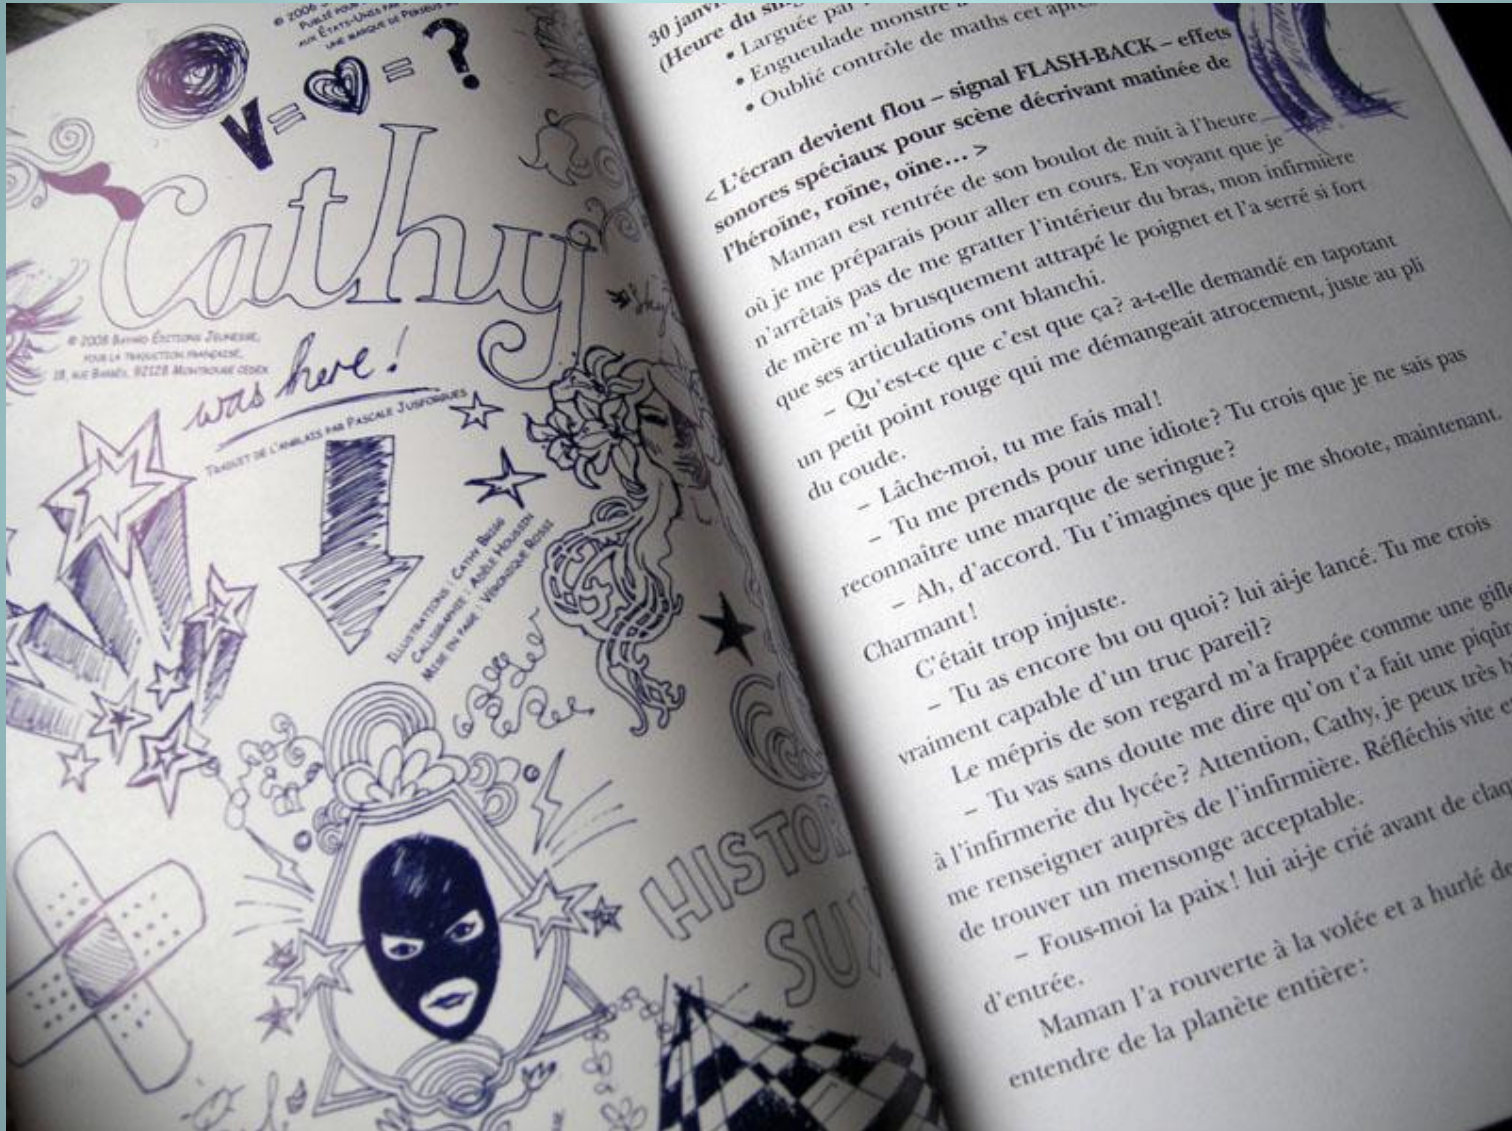 © 2006
PUBLIÉ POUR
AUX ÉTATS-UNIS PAR
UNE MARQUE DE PERSEUS
V = = ?
Cathy
© 2008 BAYARD ÉDITIONS JEUNESSE,
POUR LA TRADUCTION FRANÇAISE,
18, RUE BARBÈS, 92128 MONTROUGE CEDEX
was here!
TRADUIT DE L'ANGLAIS PAR PASCALE JUSFORGUES
ILLUSTRATIONS : CATHY BRIGG
CALLIGRAPHIE : ADÈLE HOUSSIN
MISE EN PAGE : VÉRONIQUE ROSSI
HISTOR
SUX
30 janv
(Heure du
• Larguée par
• Engueulade monstre
• Oublié contrôle de maths cet
< L'écran devient flou – signal FLASH-BACK – effets
sonores spéciaux pour scène décrivant matinée de
l'héroïne, roïne, oïne… >
Maman est rentrée de son boulot de nuit à l'heure
où je me préparais pour aller en cours. En voyant que je
n'arrêtais pas de me gratter l'intérieur du bras, mon infirmière
de mère m'a brusquement attrapé le poignet et l'a serré si fort
que ses articulations ont blanchi.
– Qu'est-ce que c'est que ça? a-t-elle demandé en tapotant
un petit point rouge qui me démangeait atrocement, juste au pli
du coude.
– Lâche-moi, tu me fais mal!
– Tu me prends pour une idiote? Tu crois que je ne sais pas
reconnaître une marque de seringue?
– Ah, d'accord. Tu t'imagines que je me shoote, maintenant.
Charmant!
C'était trop injuste.
– Tu as encore bu ou quoi? lui ai-je lancé. Tu me crois
vraiment capable d'un truc pareil?
Le mépris de son regard m'a frappée comme une gifle
– Tu vas sans doute me dire qu'on t'a fait une piqûr
à l'infirmerie du lycée? Attention, Cathy, je peux très
me renseigner auprès de l'infirmière. Réfléchis vite
de trouver un mensonge acceptable.
– Fous-moi la paix! lui ai-je crié avant de claq
d'entrée.
Maman l'a rouverte à la volée et a hurlé
entendre de la planète entière: